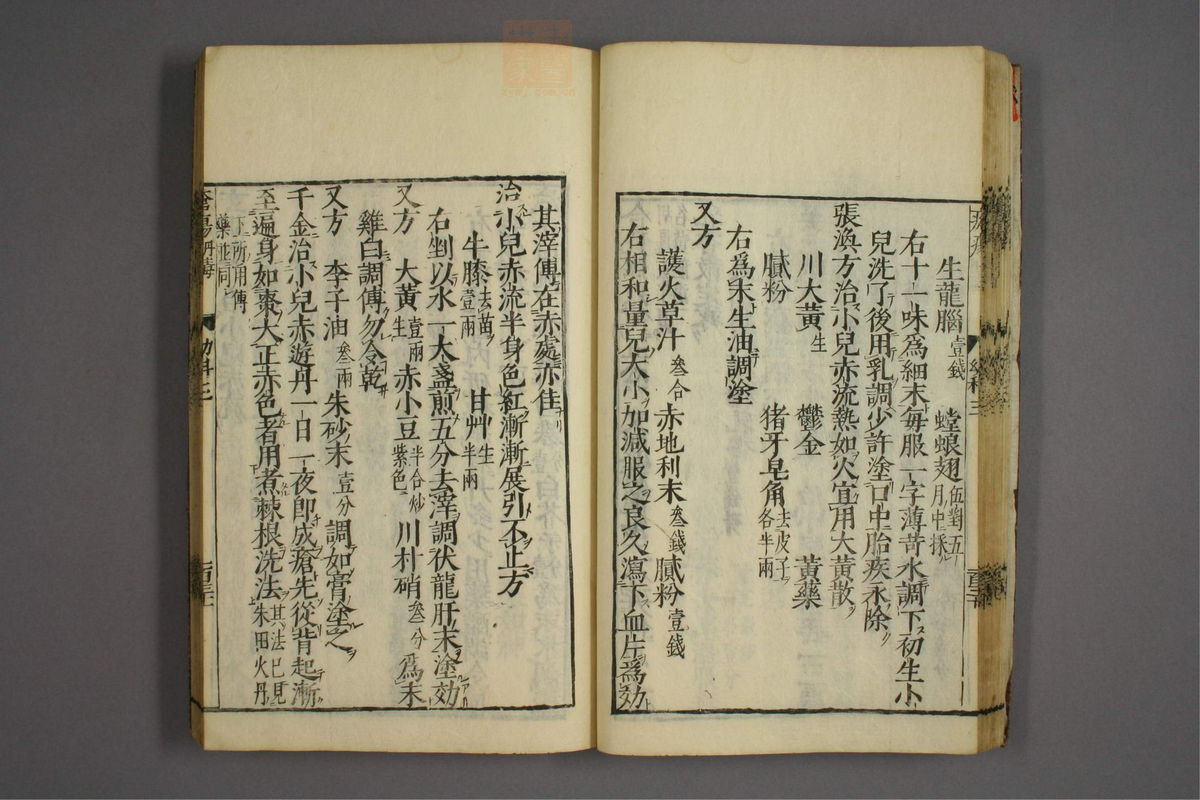 生龍腦壹錢　螳蜋翅伍對五月中採
右十一味爲細末毎服一字薄苛水調下初生小
兒洗了後用乳調少許塗口中胎疾永除
張渙方治小兒赤流熱如火宜用大黃散
川大黃生　鬱金　黃蘗
膩粉　猪牙皂角去皮子各半兩
右爲末生油調塗
又方
護火草汁叁合　赤地利末叁錢　膩粉壹錢
右相和量兒大小加減服之良久瀉下血片爲効
其滓傅在赤處亦佳
治小兒赤流半身色紅漸漸展引不止方
牛膝去苗壹兩　甘艸生半兩
右剉以水一大盞煎五分去滓調伏龍肝末塗効
又方　大黃壹兩生　赤小豆半合炒紫色　川朴硝叁分爲末
雞白調傅勿令乾
又方　李子油叁兩　朱砂末壹分　調如膏塗之
千金治小兒赤遊丹一日一夜即成瘡先從背起漸
至遍身如棗大正赤色者用煮棘根洗法其法已見朱田火丹
下所用傅藥並同